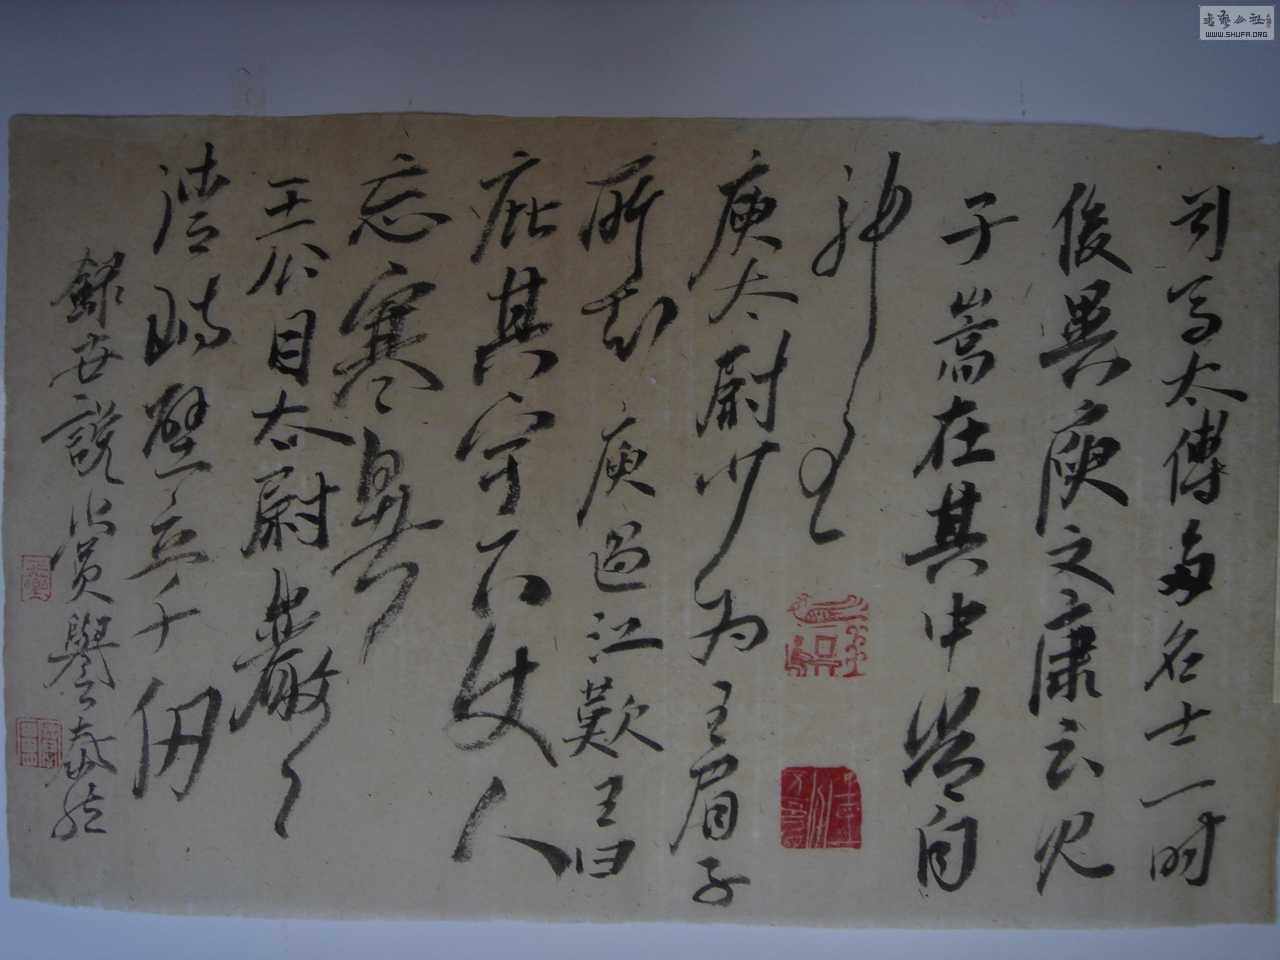 司马太傅多名士一时
俊異庾文康云见
子嵩在其中常自
神王
庾太尉少为王眉子
所知庾過江歎王曰
庇其宇下使人
忘寒暑
王公目太尉巖巖
清峙壁立千仞
錄世説 賞譽
书艺公社
WWW.SHUFA.ORG